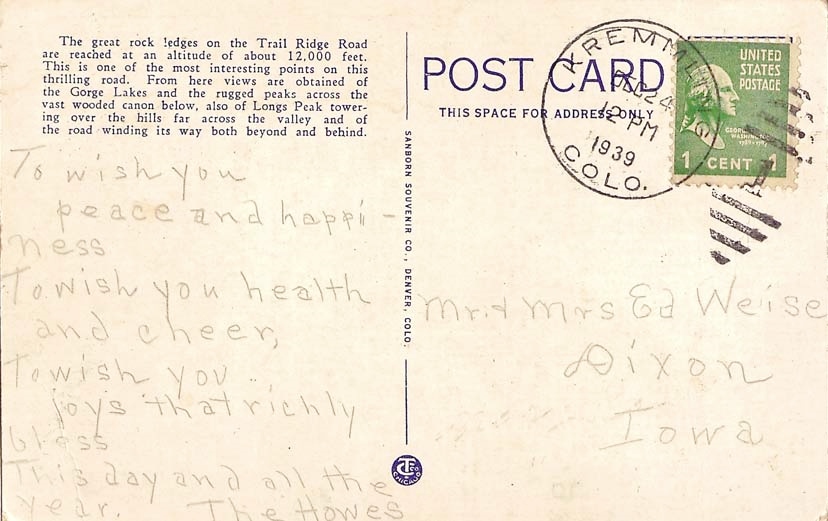 The great rock ledges on the Trail Ridge Road
are reached at an altitude of about 12,000 feet.
This is one of the most interesting points on this
thrilling road. From here views are obtained of
the Gorge Lakes and the rugged peaks across the
vast wooded canon below, also of Longs Peak tower-
ing over the hills far across the valley and of
the road winding its way both beyond and behind.
To wish you
peace and happi-
ness
To wish you health
and cheer,
To wish you
joys that richly
bless
This day and all the
year. The Howes
SANBORN SOUVENIR CO., DENVER, COLO.
CT CHICAGO
POST CARD
THIS SPACE FOR ADDRESS ONLY
KREMMLING
DEC 24
12 PM
1939
COLO.
UNITED
STATES
POSTAGE
GEORGE
WASHINGTON
1 CENT 1
Mr. & Mrs Ed Weise
Dixon
Iowa